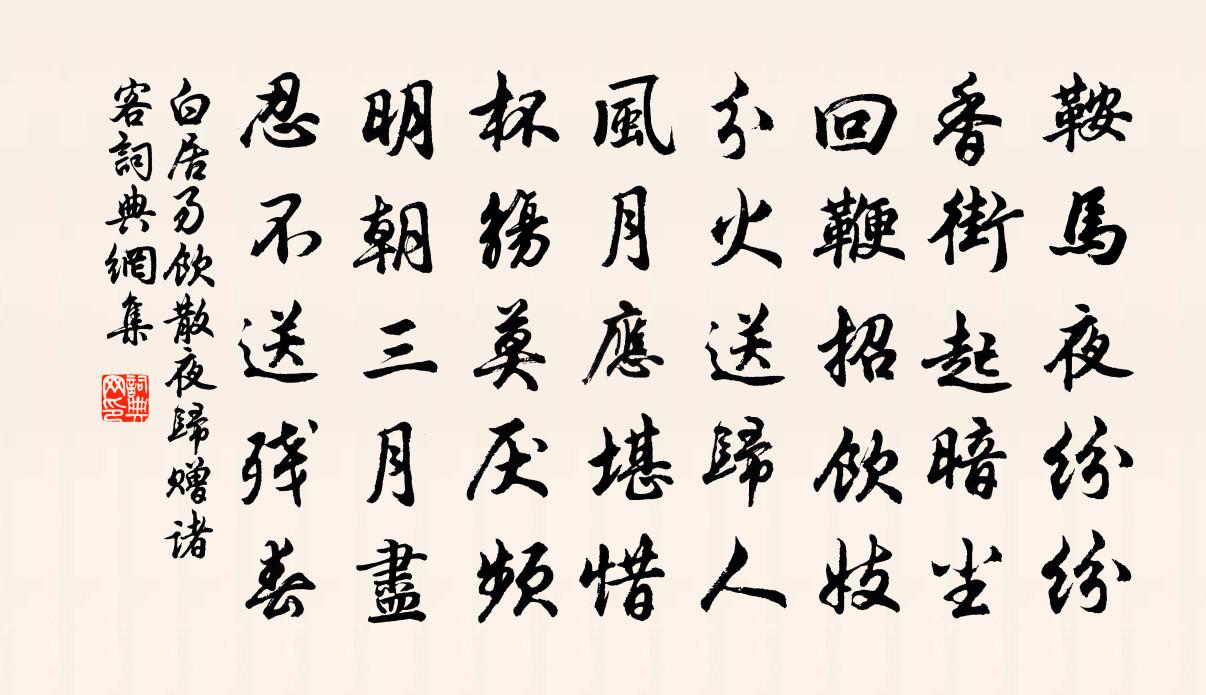 鞍馬夜紛紛
香街起暗尘
回鞭招飲妓
分火送歸人
風月應堪惜
杯觴莫厌頻
明朝三月盡
忍不送残春
白居易飲散夜歸赠诸
客詞典網集
詞典网印